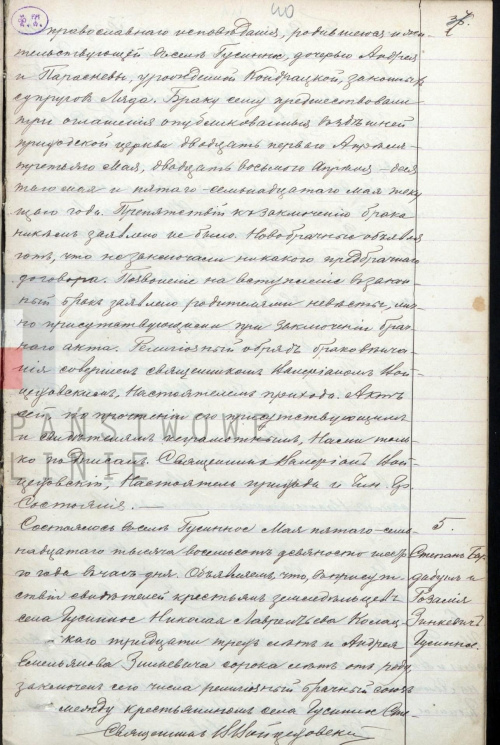 40
православнаго исповѣданія, родившеюся и жи-
тельствующей въ селѣ Гусинне, дочерью Андрея
и Параскевы, урожденной Кондрацкой, законныхъ
супруговъ Ляда. Браку сему предшествовали
три оглашенія опубликованныя въ здѣшней
приходской церкви двадцать перваго Апрѣля-
третьяго Мая, двадцать восьмого Апрѣля-деся
таго мая и пятаго-семьнадцатаго мая теку
щаго года. Препятствій къ заключенію брака
никѣмъ заявлено не было. Новобрачные объявля
ютъ, что не заключали никакого предбрачнаго
договора. Позволеніе на вступленіе въ закон
ный бракъ заявлено родителями невѣсты, лич
но присутствующими при заключеніи брач
наго акта. Религіозный обрядъ браковѣнча
нія совершенъ священникомъ Валеріаномъ Вой
цеховскимъ, Настоятелемъ прихода. Актъ
сей, по прочтеніи его присутствующимъ
и свидѣтелямъ неграмотнымъ, Нами толь
ко подписанъ. Священникъ Валеріанъ Вой
цеховскій, Настоятель прихода и Чин. Гр.
Состоянія.
PAŃSTWOWE
LINIE
5.
Степанъ Гар
дабухъ и
Розалія
Зинкевичъ
Гусинное.
Состоялось въ селѣ Гусинное Мая пятаго-семь
надцатаго тысяча восемьсотъ девяносто четвер
го года въ часъ дня. Объявляемъ, что, въ присут
ствіи свидѣтелей крестьянъ земледѣльцевъ
села Гусинное Николая Лаврентьева
каго тридцати трехъ лѣтъ и Андрея
Емельянова Зинкевича сорока лѣтъ отъ роду,
заключенъ сего числа религіозный брачный союзъ
между крестьяниномъ села Гусинне Сте-
Священникъ В Войцеховскій